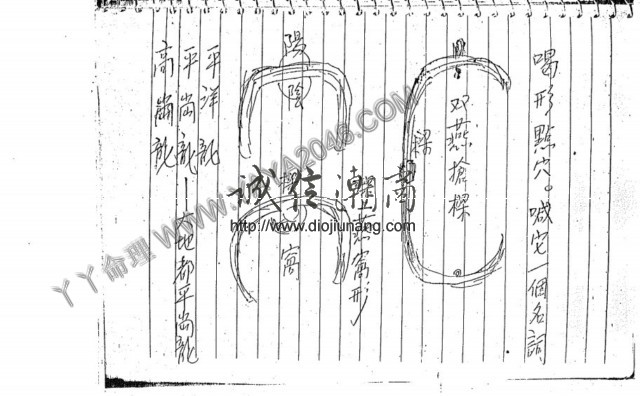 喝形點穴。喊它一個名詞
双燕搶樑
梁
陽
陰
燕窩形
窩
平洋龍
平崗龍—大地都平崗龍
高崗龍
誠信潮商
http://www.diojiunang.com
丫丫命理 WWW.YAYA2048.COM